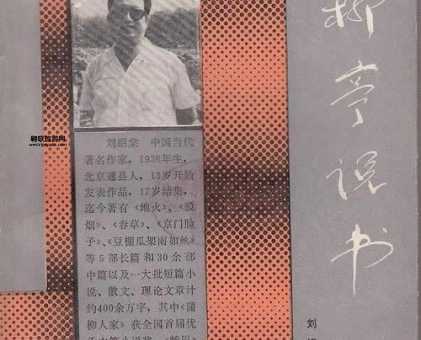 柳亭说书
刘绍棠 中国当代
著名作家,1936年生,
北京通县人,13岁开始
发表作品,17岁结集,
迄今著有《地火》、《狼
烟》、《春草》、《京门脸
子》、《豆棚瓜架雨如丝》
等5部长篇和30余部
中篇以及一大批短篇小
说、散文、理论文章计
约400余万字,其中《蒲
柳人家》获全国首届优
刘